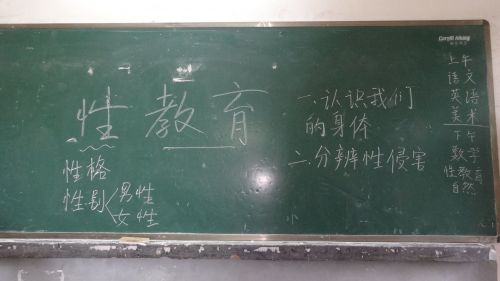 性教育
性格
性别
男性
女性
一.认识我们
的身体
二.分辨性侵害
上午
语文
英语
美术
下午
数学
性教育
自然